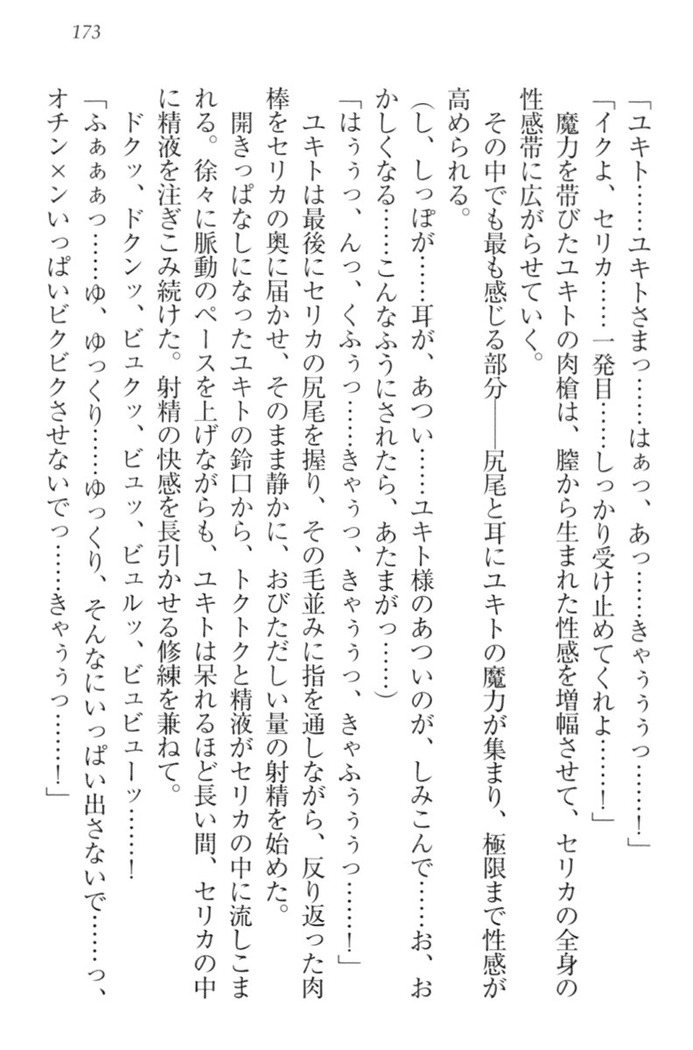 173
「ユキト……ユキトさまっ……はぁっ、あっ……きゃうぅぅっ……！」
「イクよ、セリカ……一発目……しっかり受け止めてくれよ……！」
　魔力を帯びたユキトの肉槍は、膣から生まれた性感を増幅させて、セリカの全身の
性感帯に広がらせていく。
　その中でも最も感じる部分――尻尾と耳にユキトの魔力が集まり、極限まで性感が
高められる。
（し、しっぽが……耳が、あつい……ユキト様のあついのが、しみこんで……お、お
かしくなる……こんなふうにされたら、あたまがっ……）
「はぅぅっ、んっ、くふぅっ……きゃうっ、きゃうぅっ、きゃふぅぅぅっ……！」
　ユキトは最後にセリカの尻尾を握り、その毛並みに指を通しながら、反り返った肉
棒をセリカの奥に届かせ、そのまま静かに、おびただしい量の射精を始めた。
　開きっぱなしになったユキトの鈴口から、トクトクと精液がセリカの中に流しこま
れる。徐々に脈動のペースを上げながらも、ユキトは呆れるほど長い間、セリカの中
に精液を注ぎこみ続けた。射精の快感を長引かせる修練を兼ねて。
　ドクッ、ドクンッ、ビュクッ、ビュッ、ビュルッ、ビュビューッ……！
「ふぁぁぁっ……ゆ、ゆっくり……ゆっくり、そんなにいっぱい出さないで……っ、
オチン×ンいっぱいビクビクさせないでっ……きゃうぅっ……！」